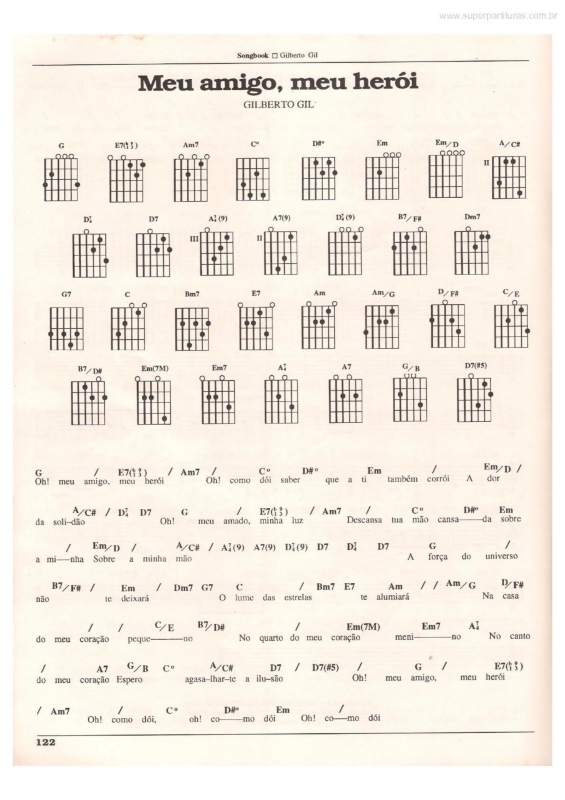 www.superpartituras.com.br
Songbook □ Gilberto Gil
Meu amigo, meu herói
GILBERTO GIL
G E7(b9 13) Am7 C° D#° Em Em/D A/C#
II
D7/4 D7 A7/4(9) A7(9) D7/4(9) B7/F# Dm7
III II
G7 C Bm7 E7 Am Am/G D/F# C/E
B7/D# Em(7M) Em7 A7/4 A7 G/B D7(#5)
G / E7(b9 13) / Am7 / C° D#° Em / Em/D /
Oh! meu amigo, meu herói Oh! como dói saber que a ti também corrói A dor
A/C# / D7/4 D7 G / E7(b9 13) / Am7 / C° D#° Em
da soli-dão Oh! meu amado, minha luz Descansa tua mão cansa——da sobre
/ Em/D / A/C# / A7/4(9) A7(9) D7/4(9) D7 D7/4 D7 G /
a mi—nha Sobre a minha mão A força do universo
B7/F# / Em / Dm7 G7 C / Bm7 E7 Am / / Am/G D/F#
não te deixará O lume das estrelas te alumiará Na casa
/ / C/E B7/D# / Em(7M) Em7 A7/4
do meu coração peque———no No quarto do meu coração meni———no No canto
/ A7 G/B C° A/C# D7 / D7(#5) / G / E7(b9 13)
do meu coração Espero agasa-lhar-te a ilu-são Oh! meu amigo, meu herói
/ Am7 / C° D#° Em /
Oh! como dói, oh! co——mo dói Oh! co—mo dói
122